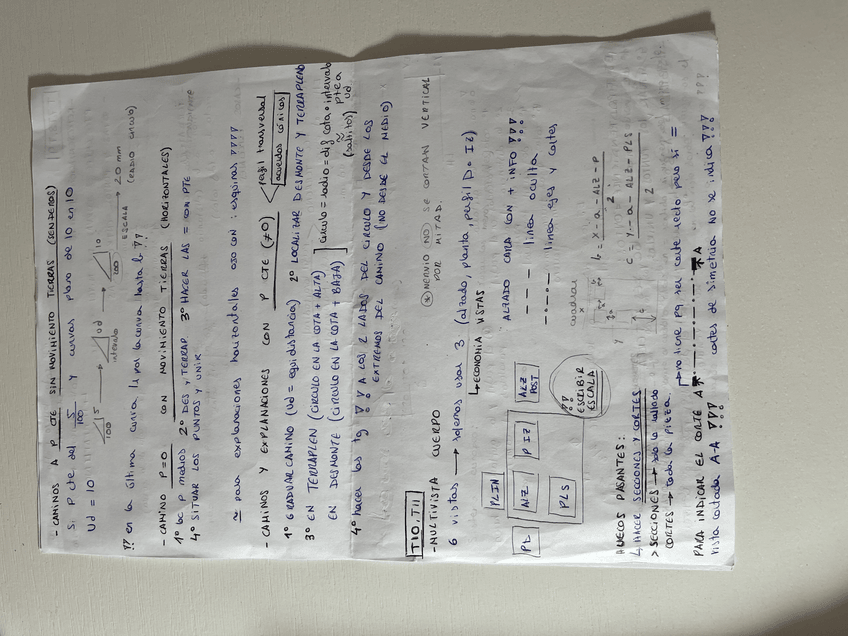 - CAMINOS A P CTE SIN MOVIMIENTO TIERRAS (SENDEROS)
Si P cte del 5/100 y curvas plano de 10 en 10
Ud = 10
100 5
Ud
intervalo
10
100
ESCALA
20 mm
(RADIO círculo)
en la última curva tiras la curva hasta b
- CAMINO P=0 CON MOVIMIENTO TIERRAS (HORIZONTALES)
1º P medios 2º DES y TERRAP 3º HACER LAS = CON PTE
4º SITUAR LOS PUNTOS Y UNIR
≃ para explanaciones horizontales ojo con: esquinas
- CAMINOS Y EXPLANACIONES CON P CTE (≠0)
perfil transversal
acuerdos cónicos
1º GRADUAR CAMINO (Ud = equidistancia) 2º LOCALIZAR DESMONTE Y TERRAPLEN
3º EN TERRAPLEN (CIRCULO EN LA COTA + ALTA)
EN DESMONTE (CIRCULO EN LA COTA + BAJA)
círculo = radio = dif cota · intervalo
ptea
ud
(saltitos)
4º hacer las tg A LOS 2 LADOS DEL CIRCULO Y DESDE LOS
EXTREMOS DEL CAMINO (NO DESDE EL MEDIO)
T10, T11
* NERVIO (NO) SE CORTAN VERTICAL
POR MITAD.
- MULTIVISTA CUERPO
6 vistas → solemos usar 3 (alzado, planta, perfil D o IZ)
↳ ECONOMIA VISTAS
PLIN
PD
ALZ
P IZ
ALZ POST
PLS
ALZADO CARA CON + INFO
- - - línea oculta
- · - · - línea ejes y cortes
ESCRIBIR
ESCALA
cuadrar
x
y
b = X - a - ALZ - P / 2
c = Y - a - ALZ - PLS / 2
HUECOS PASANTES:
↳ HACER SECCIONES Y CORTES
> SECCIONES → solo lo rallado
CORTES → toda la pieza
no tiene pq ser corte recto pero si =
PARA INDICAR EL CORTE A A
vista cortada A-A
cortes de simetría no se indica